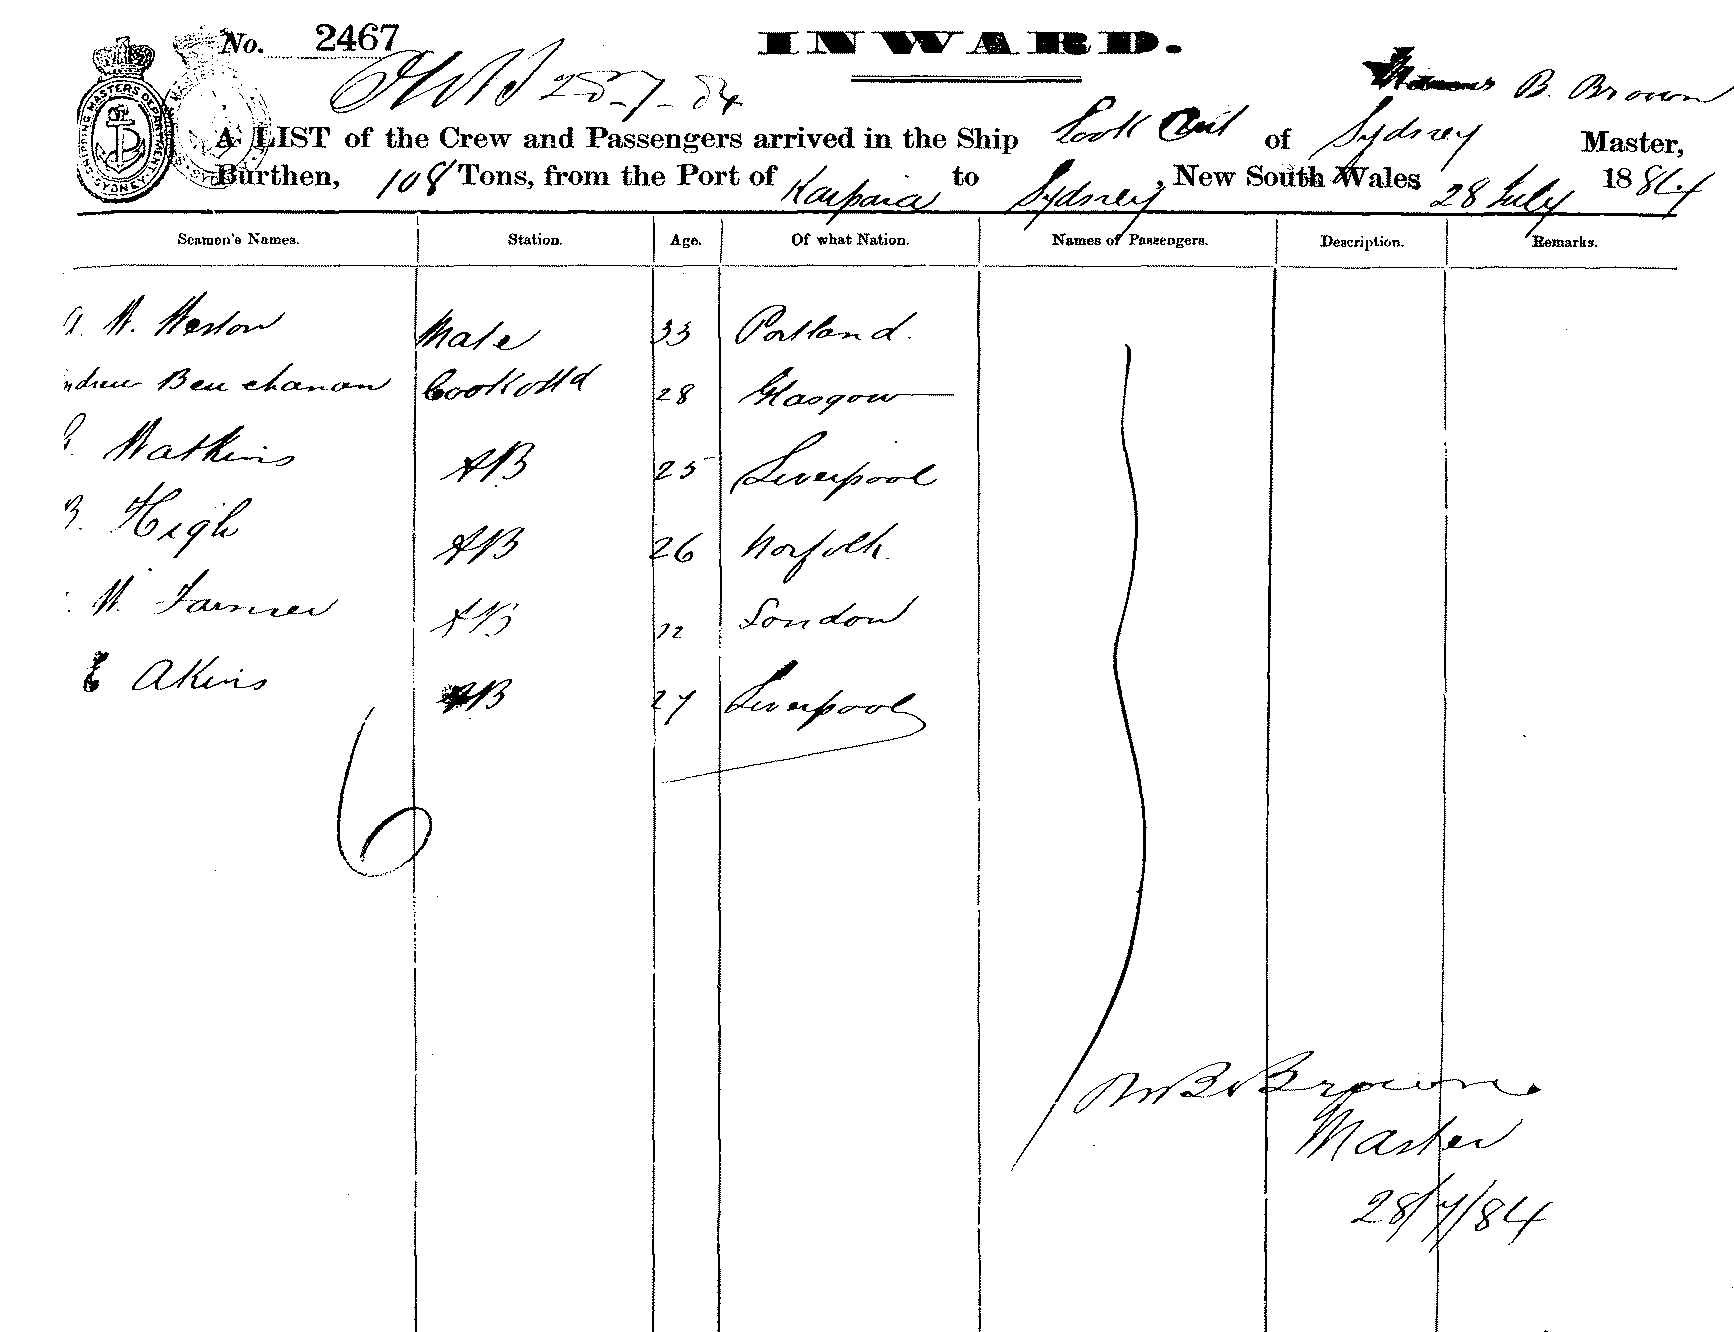 No. 2467
INWARD.
25-7-84
B. Brown
A LIST of the Crew and Passengers arrived in the Ship Look Out of Sydney Master,
Burthen, 108 Tons, from the Port of Kaipara to Sydney, New South Wales 28 July 1884
SHIPPING MASTERS DEPARTMENT SYDNEY
Seamen's Names. Station. Age. Of what Nation. Names of Passengers. Description. Remarks.
W. Weston Mate 33 Portland.
Beuchanan Cook &c 28 Glasgow
Watkins AB 25 Liverpool
B. High AB 26 Norfolk.
W. Farmer AB 22 London
E Akins AB 27 Liverpool
6
B. Brown.
Master
28/7/84